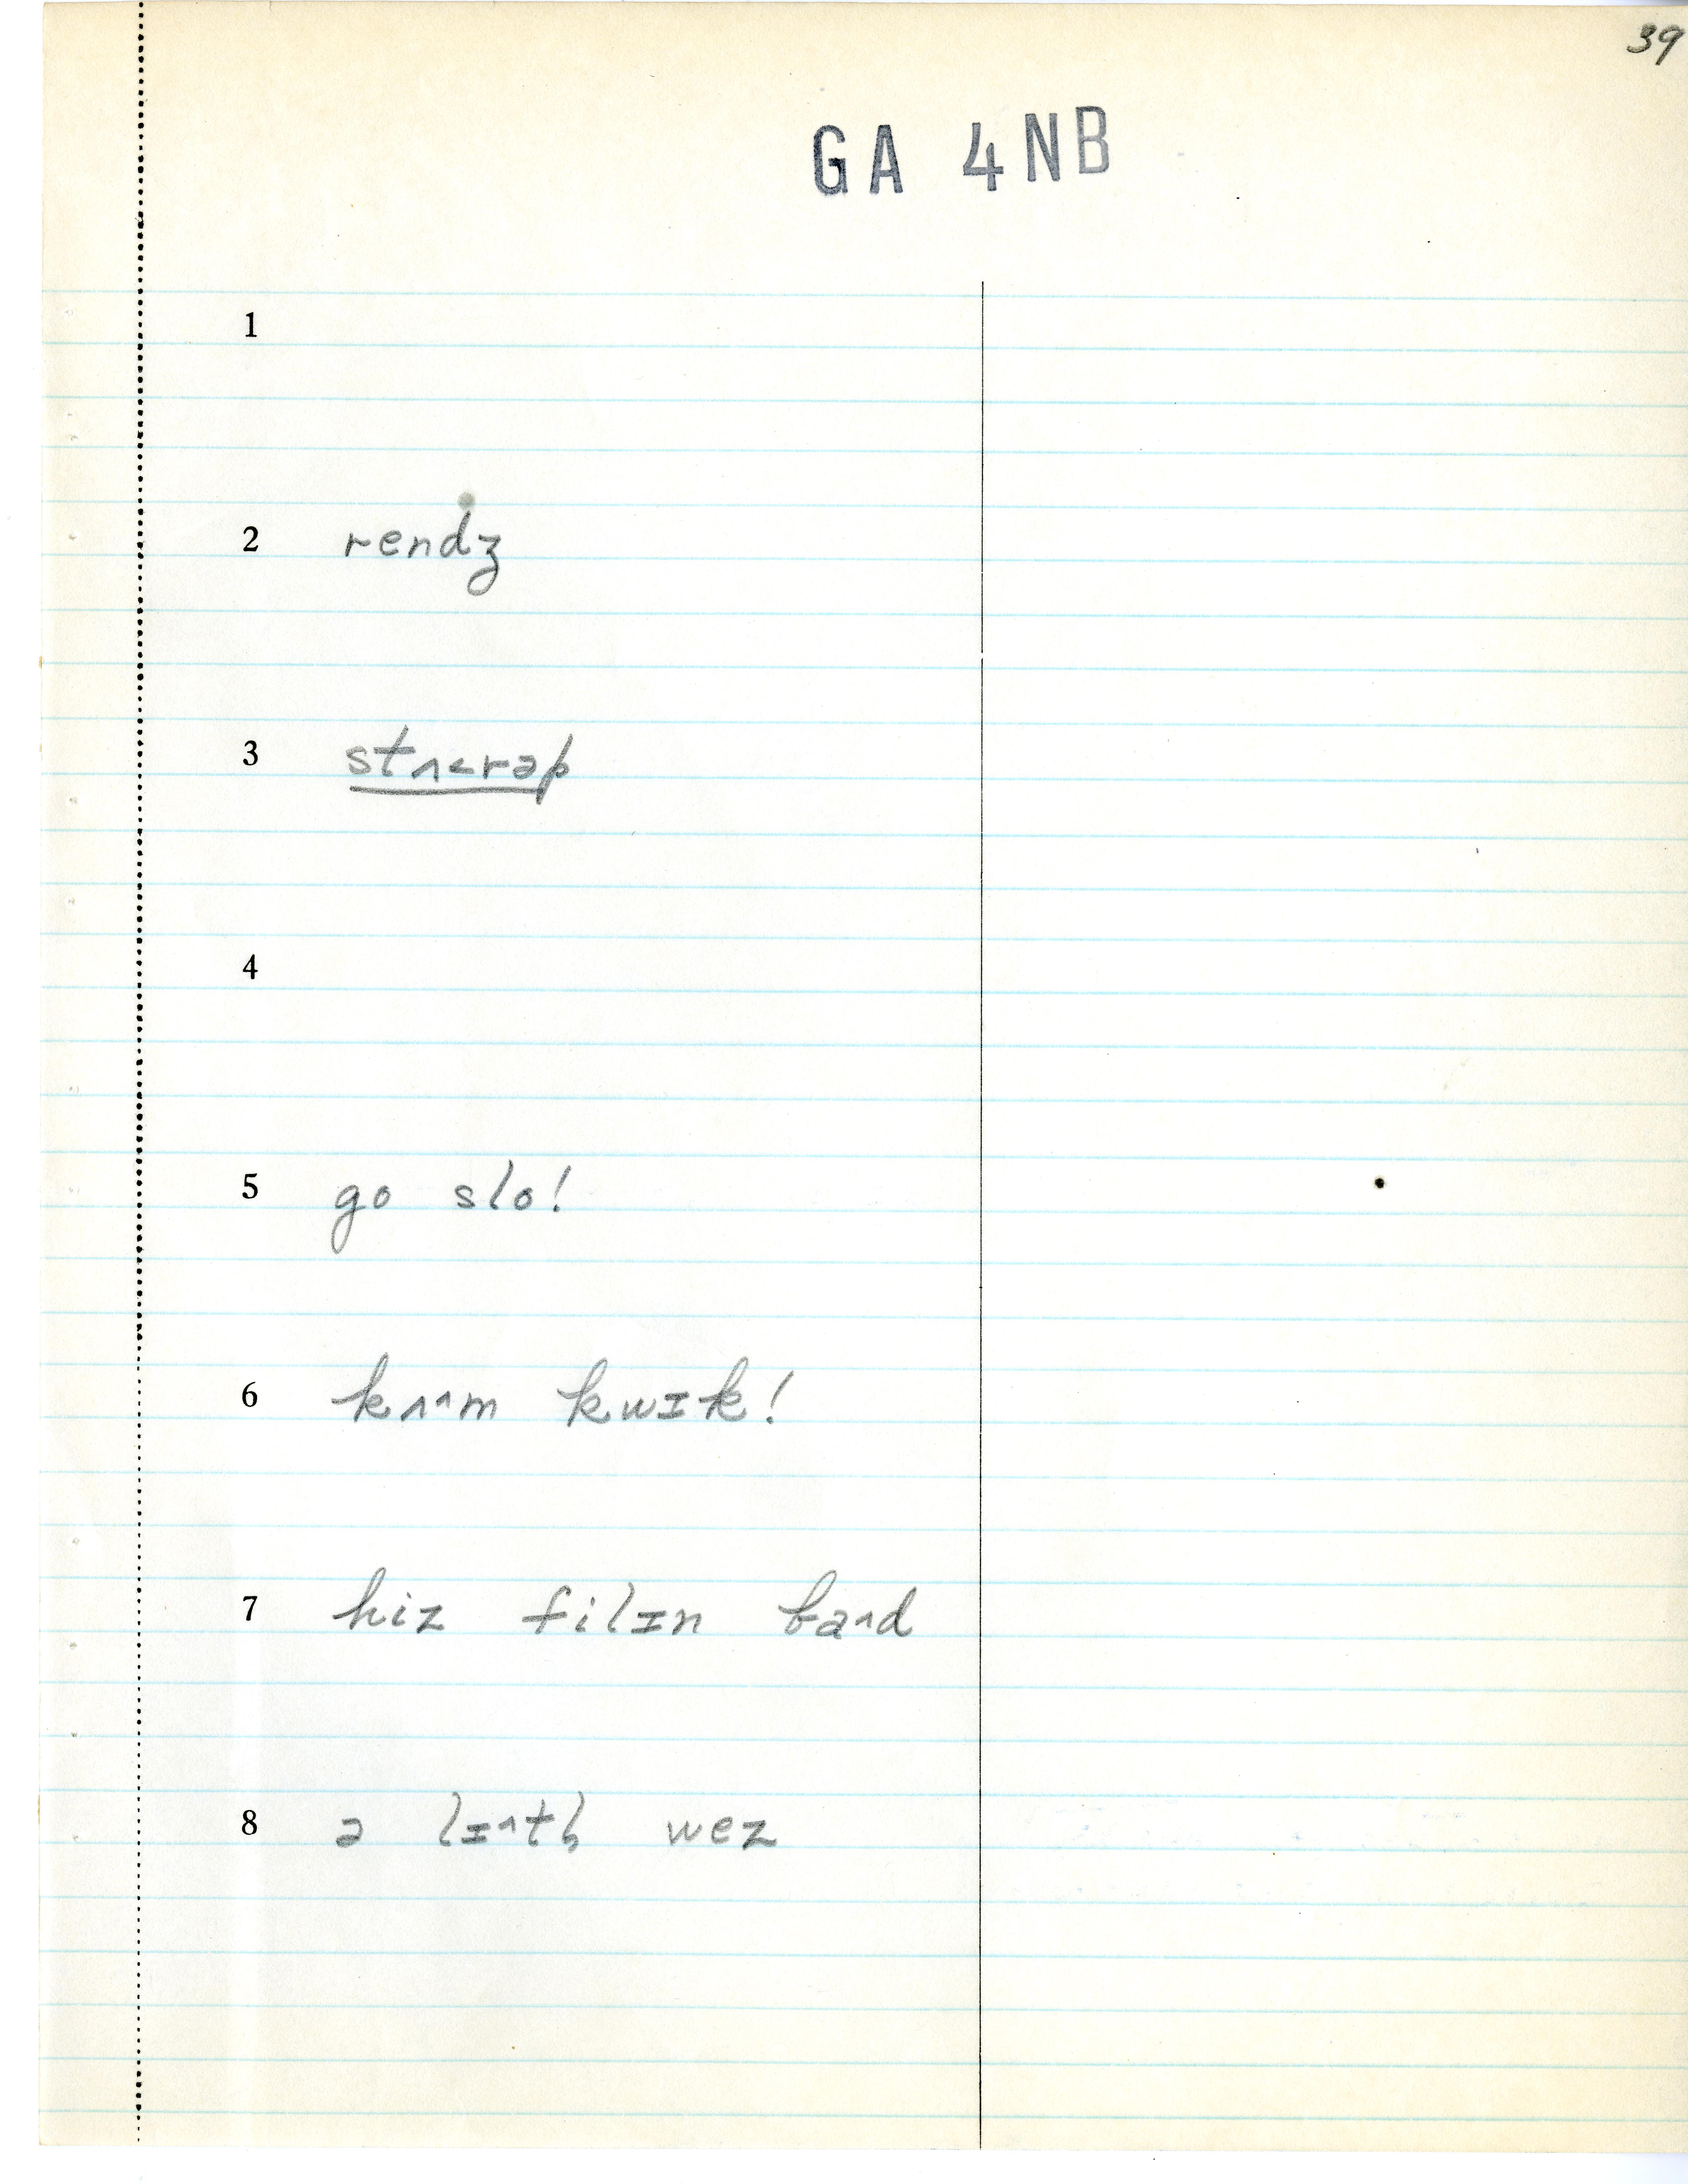 39
GA 4NB
1
2 rendz
3 stʌ˂rəp
4
5 go slo!
6 kʌ˄m kwɪk!
7 hiz filɪn ba˄d
8 ə lɪ˄tl̩ wez